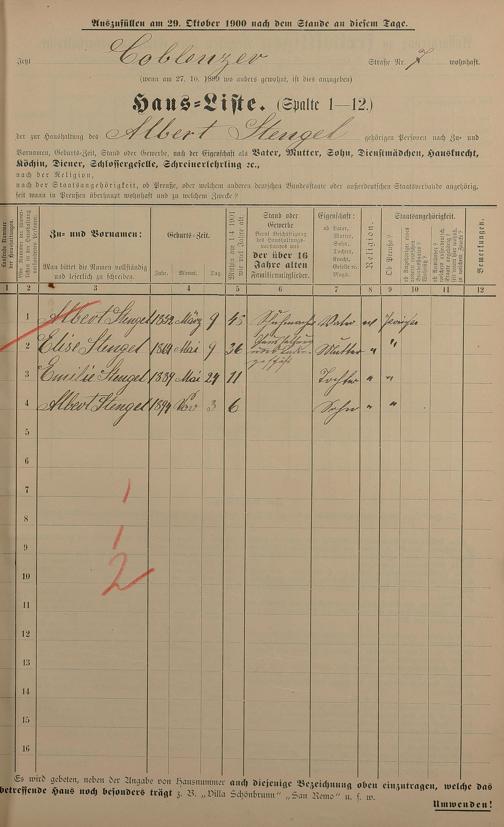 Auszufüllen am 29. Oktober 1900 nach dem Stande an diesem Tage.
Jetzt Coblenzer Straße Nr. 7 wohnhaft.
(wenn am 27. 10. 1899 wo anders gewohnt, ist dies anzugeben)
Haus-Liste. (Spalte 1—12.)
der zur Haushaltung des Albert Stengel gehörigen Personen nach Zu- und
Vornamen, Geburts-Zeit, Stand oder Gewerbe, nach der Eigenschaft als Vater, Mutter, Sohn, Dienstmädchen, Hausknecht,
Köchin, Diener, Schlossergeselle, Schreinerlehrling ꝛc.,
nach der Religion,
nach der Staatsangehörigkeit, ob Preuße, oder welchem anderen deutschen Bundesstaate oder außerdeutschen Staatsverbande angehörig,
seit wann in Preußen überhaupt wohnhaft und zu welchem Zwecke?
Zu- und Vornamen:
Man bittet die Namen vollständig
und leserlich zu schreiben.
Geburts-Zeit.
Jahr. Monat. Tag.
Stand oder
Gewerbe
der über 16
Jahre alten
Familienmitglieder.
Eigenschaft:
ob Vater,
Mutter,
Sohn,
Tochter,
Knecht,
Geselle ꝛc.
Magd.
Religion.
Staatsangehörigkeit.
Ob Preuße?
Bemerkungen.
1 2 3 4 5 6 7 8 9 10 11 12
1 Albert Stengel März 9 45 Vater
2 Elise Stengel 1864 Mai 9 36 Mutter " "
3 Emilie Stengel 1889 Mai 24 11 Tochter " "
4 Albert Stengel 1894 Nov 3 6 Sohn " "
5
6
7
8
9
10
11
12
13
14
15
16
1
1
2
Es wird gebeten, neben der Angabe von Hausnummer auch diejenige Bezeichnung oben einzutragen, welche das
betreffende Haus noch besonders trägt z. B. „Villa Schönbrunn" „San Remo" u. s. w.
Umwenden!